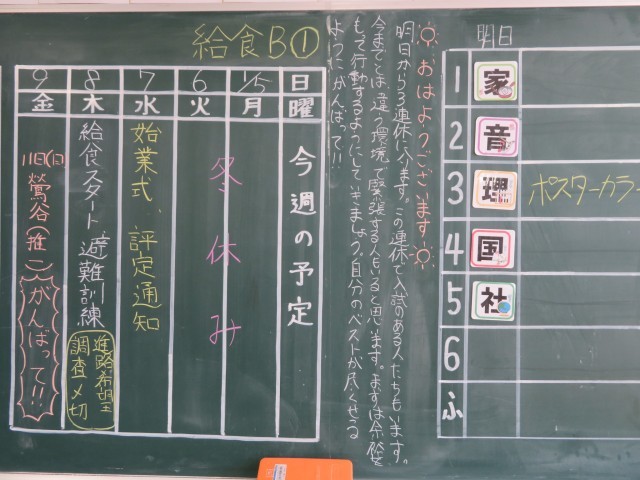 給食B①
日 1/5 6 7 8 9
曜 月 火 水 木 金
今週の予定
冬休み
始業式、評定通知
給食スタート、避難訓練
進路希望
調査〆切
11日(日)
鶯谷(推二)
がんばって!!
おはようございます
明日から3連休に入ります。この連休で入試のある人たちもいます。
今までとは違う環境で緊張する人もいると思います。まずは余裕を
もって行動するようにしていきましょう。自分のベストが尽くせる
ようにがんばって!!
明日
1 家
2 音
3 理 ポスターカラー
4 国
5 社
6
ふ